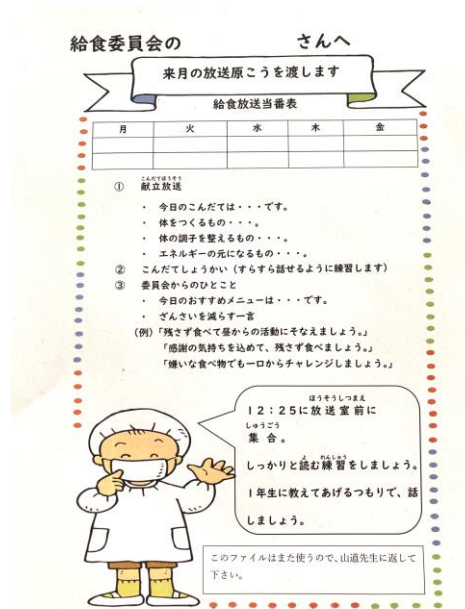 給食委員会の さんへ
来月の放送原こうを渡します
給食放送当番表
月 火 水 木 金
こんだてほうそう
① 献立放送
・ 今日のこんだては・・・です。
・ 体をつくるもの・・・。
・ 体の調子を整えるもの・・・。
・ エネルギーの元になるもの・・・。
② こんだてしょうかい（すらすら話せるように練習します）
③ 委員会からのひとこと
・ 今日のおすすめメニューは・・・です。
・ ざんさいを減らす一言
（例）「残さず食べて昼からの活動にそなえましょう。」
「感謝の気持ちを込めて、残さず食べましょう。」
「嫌いな食べ物でも一口からチャレンジしましょう。」
ほうそうしつまえ
12：25に放送室前に
しゅうごう
集合。
よ れんしゅう
しっかりと読む練習をしましょう。
1年生に教えてあげるつもりで、話
しましょう。
このファイルはまた使うので、山道先生に返して
下さい。